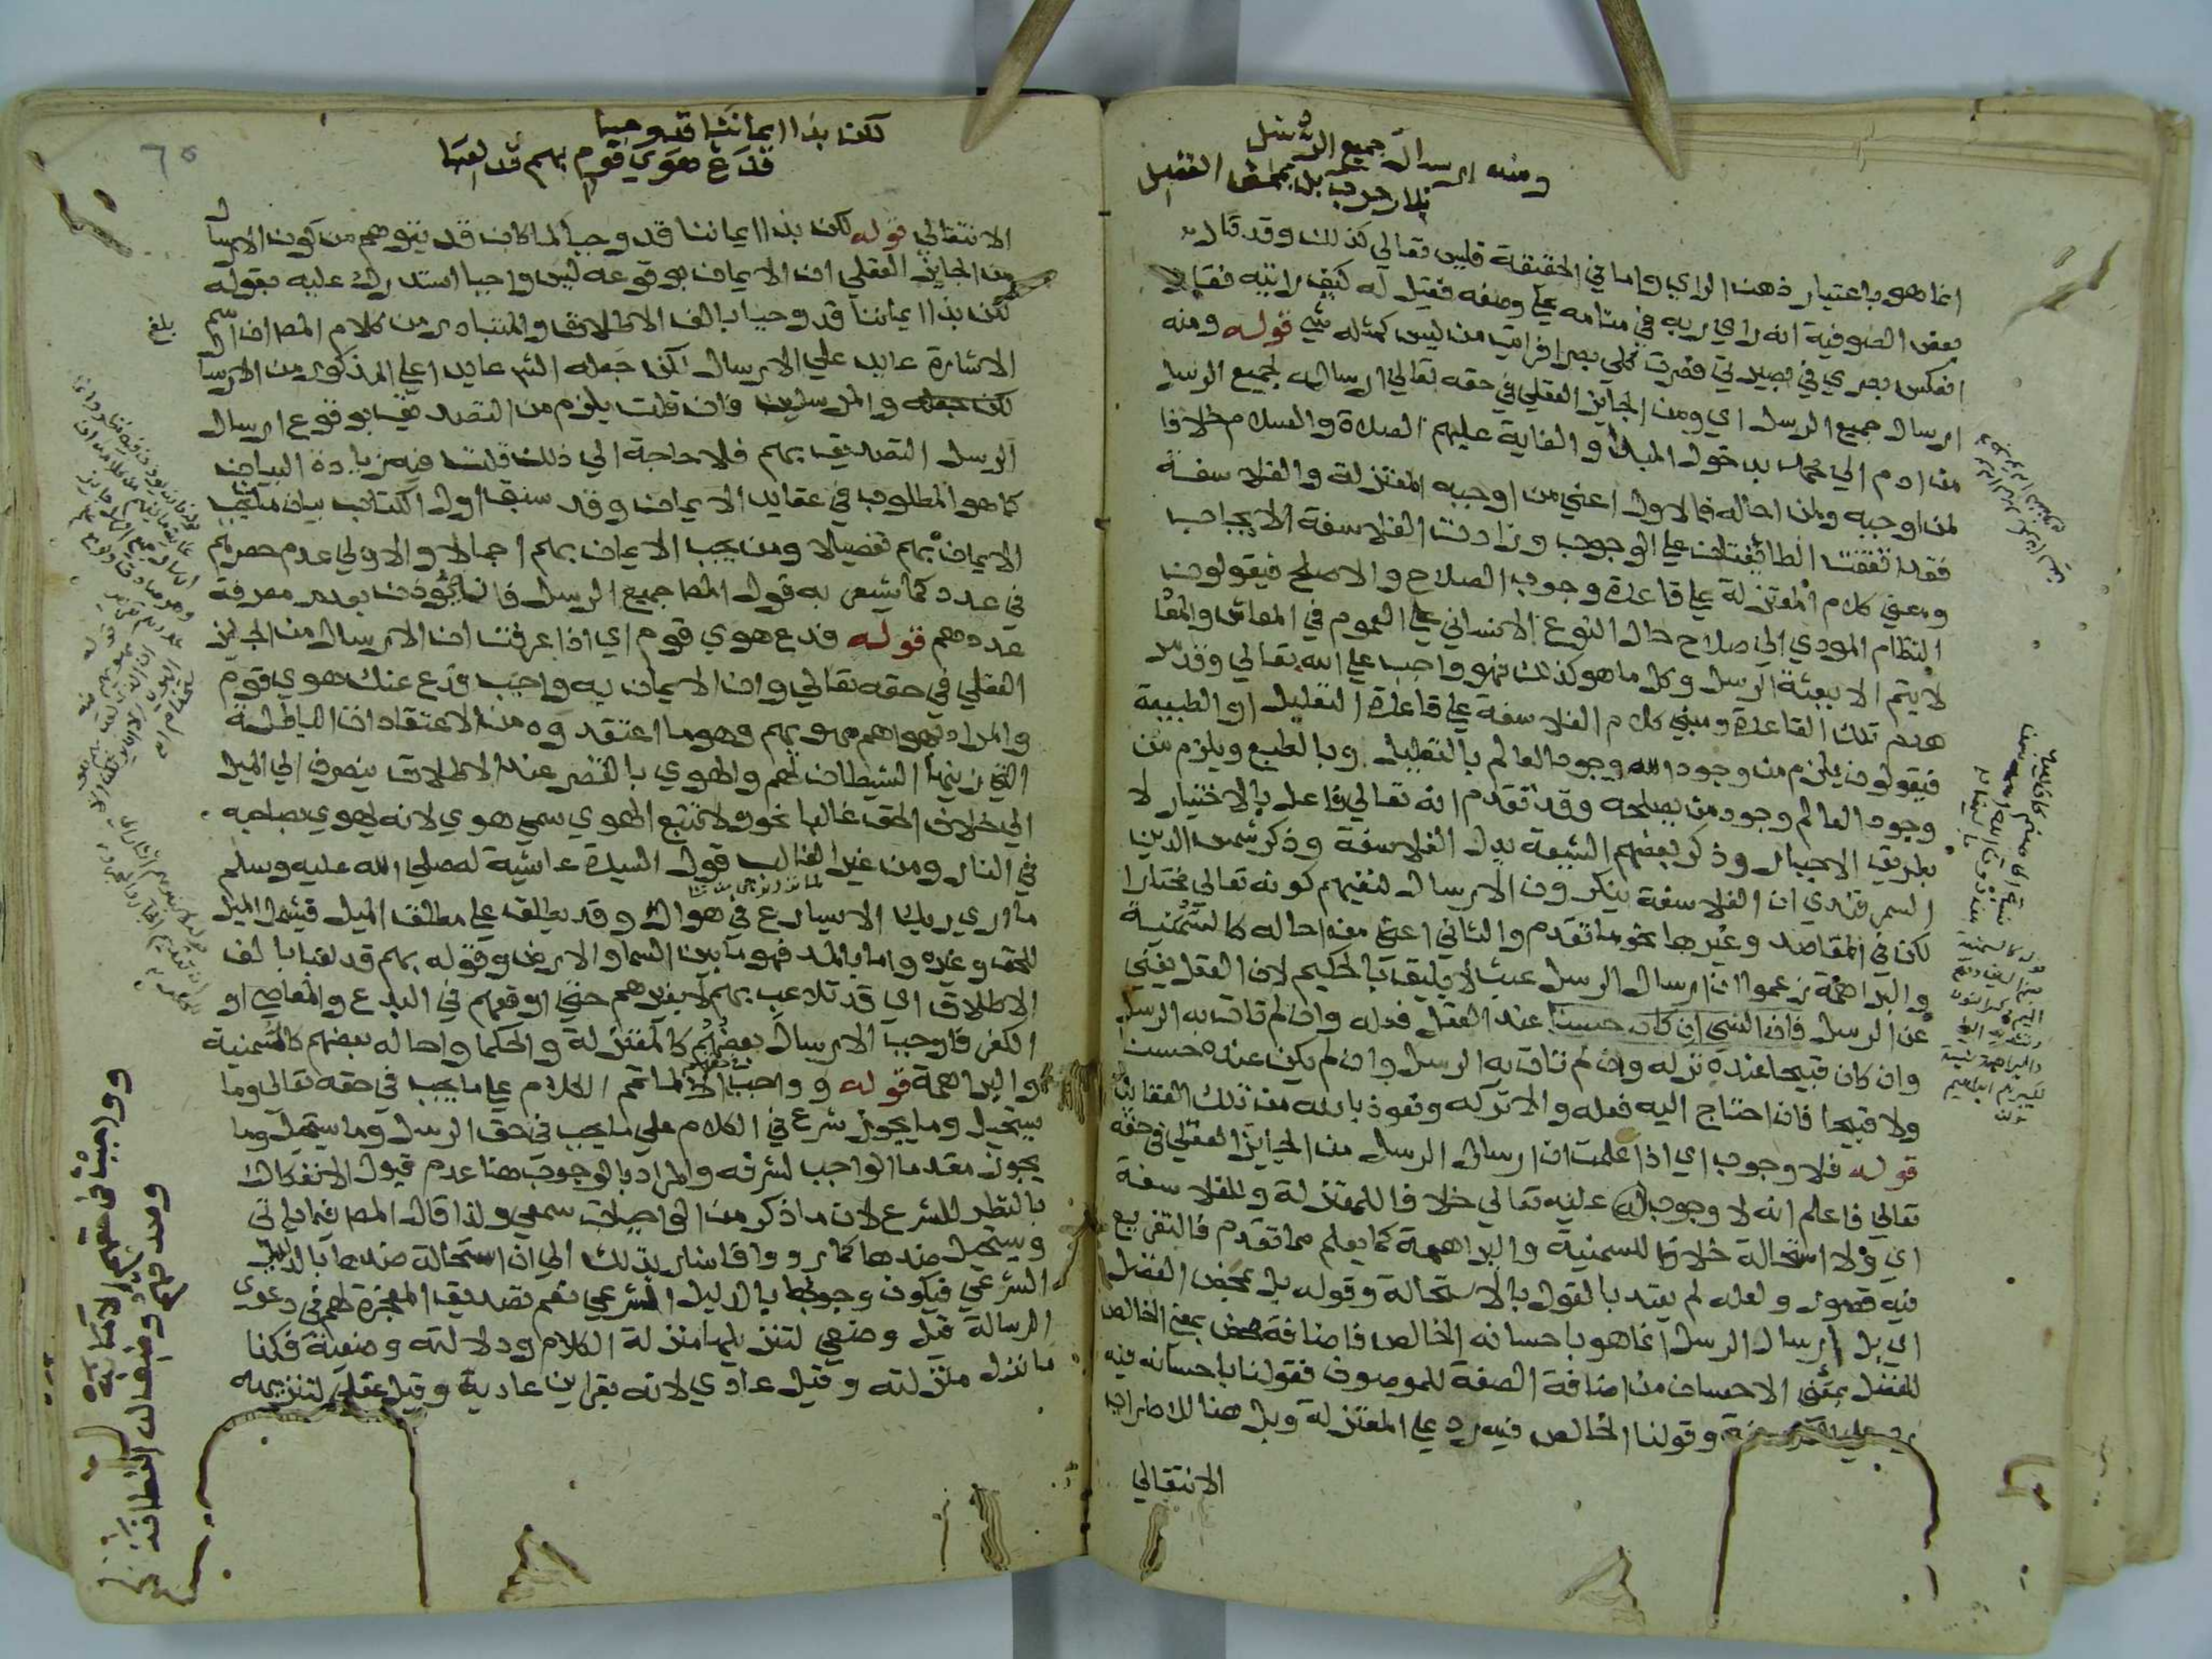 ومنه ارسال جميع الرسل
فلا وجوب بل بمحض الفضل
انما هو باعتبار ذهن الراي واما في الحقيقة فليس تعالى كذلك وقد قال
بعض الصوفية انه راي ربه في منامه على وصفه فقيل له كيف رايته فقال
انعكس بصري في بصيرتي فصرت كلي بصرا فرايت من ليس كمثله شي قوله ومنه
ارسال جميع الرسل اي ومن الجايز العقلي في حقه تعالى ارساله لجميع الرسل
من ادم الي محمد بدخول المبدا والغاية عليهم الصلاة والسلام خلافا
لمن اوجبه ولمن احاله فالاول اعني من اوجبه المعتزلة والفلاسفة
فقد اتفقت الطائفتان على الوجوب وزادت الفلاسفة الايجاب
ومعنى كلام المعتزلة على قاعدة وجوب الصلاح والاصلح فيقولون
النظام المودي الي صلاح حال النوع الانساني على العموم في المعاش والمعاد
لا يتم الا ببعثة الرسل وكل ما هو كذلك فهو واجب على الله تعالى وقد مر
هدم تلك القاعدة ومبنى كلام الفلاسفة على قاعدة التعليل او الطبيعة
فيقولون يلزم من وجود الله وجود العالم بالتعليل وبالطبع ويلزم من
وجود العالم وجود من يصلحه وقد تقدم انه تعالى فاعل بالاختيار لا
بطريق الاجبار وذكر بعضهم الشيعة بدل الفلاسفة وذكر شمس الدين
السمرقندي ان الفلاسفة ينكرون الارسال لنفيهم كونه تعالى مختارا
لكن في المقاصد وغيرها نحو ما تقدم والثاني اعني من احاله كالسمنية
والبراهمة زعموا ان ارسال الرسل عبث لا يليق بالحكيم لان العقل يغني
عن الرسل فان الشي ان كان حسنا عند العقل فعله وان لم تات به الرسل
وان كان قبيحا عنده تركه وان لم تات به الرسل وان لم يكن عنده حسنا
ولا قبيحا فان احتاج اليه فعله والا تركه ونعوذ بالله من تلك العقائد
قوله فلا وجوب اي اذا علمت ان ارسال الرسل من الجايز العقلي في حقه
تعالى فاعلم انه لا وجوب له عليه تعالى خلافا للمعتزلة وللفلاسفة
اي ولا استحالة خلافا للسمنية والبراهمة كما يعلم مما تقدم فالتفريع
فيه قصور ولعله لم يعتد بالقول بالاستحالة وقوله بل بمحض الفضل
اي بل ارسال الرسل انما هو باحسانه الخالص فاضافة محض بمعنى الخالص
للفضل بمعنى الاحسان من اضافة الصفة للموصوف فقولنا باحسانه فيه
وقولنا الخالص فيه رد على المعتزلة وبل هنا للاضراب
الانتقالي
لكن بذا ايماننا قد وجبا
فدع هوى قوم بهم قد لعبا
الانتقالي قوله لكن بذا ايماننا قد وجبا لما كان قد يتوهم من كون الارسال
من الجايز العقلي ان الايمان بوقوعه ليس واجبا استدرك عليه بقوله
لكن بذا ايماننا قد وجبا بالف الاطلاق والمتبادر من كلام المص ان اسم
الاشارة عايد على الارسال لكن جعله الش عايدا على المذكور من الارسال
والمرسلين فان قلت يلزم من التصديق بوقوع ارسال
الرسل التصديق بهم فلا حاجة الي ذلك قلت فيه زيادة البيان
كما هو المطلوب في عقايد الايمان وقد سبق اول الكتاب بيان من يجب
الايمان بهم تفصيلا ومن يجب الايمان بهم اجمالا والاولي عدم حصرهم
في عدد كما يشعر به قول المص جميع الرسل فانه يؤذن بعدم معرفة
عددهم قوله فدع هوي قوم اي اذا عرفت ان الارسال من الجايز
العقلي في حقه تعالى وان الايمان به واجب فدع عنك هوي قوم
والمراد بهواهم مهويهم وهو ما اعتقدوه من الاعتقادات الباطلة
التي زينها الشيطان لهم والهوي بالقصر عند الاطلاق ينصرف الي الميل
الى خلاف الحق غالبا نحو ولا تتبع الهوي سمي هوي لانه يهوي بصاحبه
في النار ومن غير الغالب قول السيدة عائشة له صلى الله عليه وسلم
ما اري ربك الا يسارع في هواك وقد يطلق على مطلق الميل فيشمل الميل
للحق وغيره واما بالمد فهو ما بين السما والارض وقوله بهم قد لعبا بالف
الاطلاق اي قد تلاعب بهم لا بغيرهم حتي اوقعهم في البدع والمعاصي او
الكفر فاوجب الارسال بعضهم كالمعتزلة والحكما واحاله بعضهم كالسمنية
والبراهمة قوله وواجب الخ لما تمم الكلام على ما يجب في حقه تعالى وما
يستحيل وما يجوز شرع في الكلام على ما يجب في حق الرسل وما يستحيل وما
يجوز مقدما الواجب لشرفه والمراد بالوجوب هنا عدم قبول الانفكاك
بالنظر للشرع لان ما ذكر من الواجبات سمعي ولذا قال المص فيما ياتي
ويستحيل ضدها كما رووا فاشار بذلك الي ان استحالة ضدها بالدليل
الشرعي فيكون وجوبها بالدليل الشرعي نعم تصديق المعجزة لهم في دعوي
الرسالة قيل وضعي لتنزيلها منزلة الكلام ودلالته وضعية فكذا
ما نزل منزلته وقيل عادي لانه بقراين عادية وقيل عقلي لتنزيهه
بلغ
وواجب في حقهم الامانة
وصدقهم وضف له الفطانة